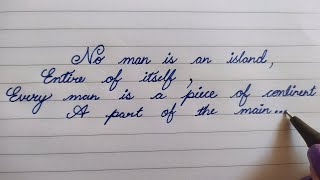 No man is an island,
Entire of itself,
Every man is a piece of continent
A part of the main...